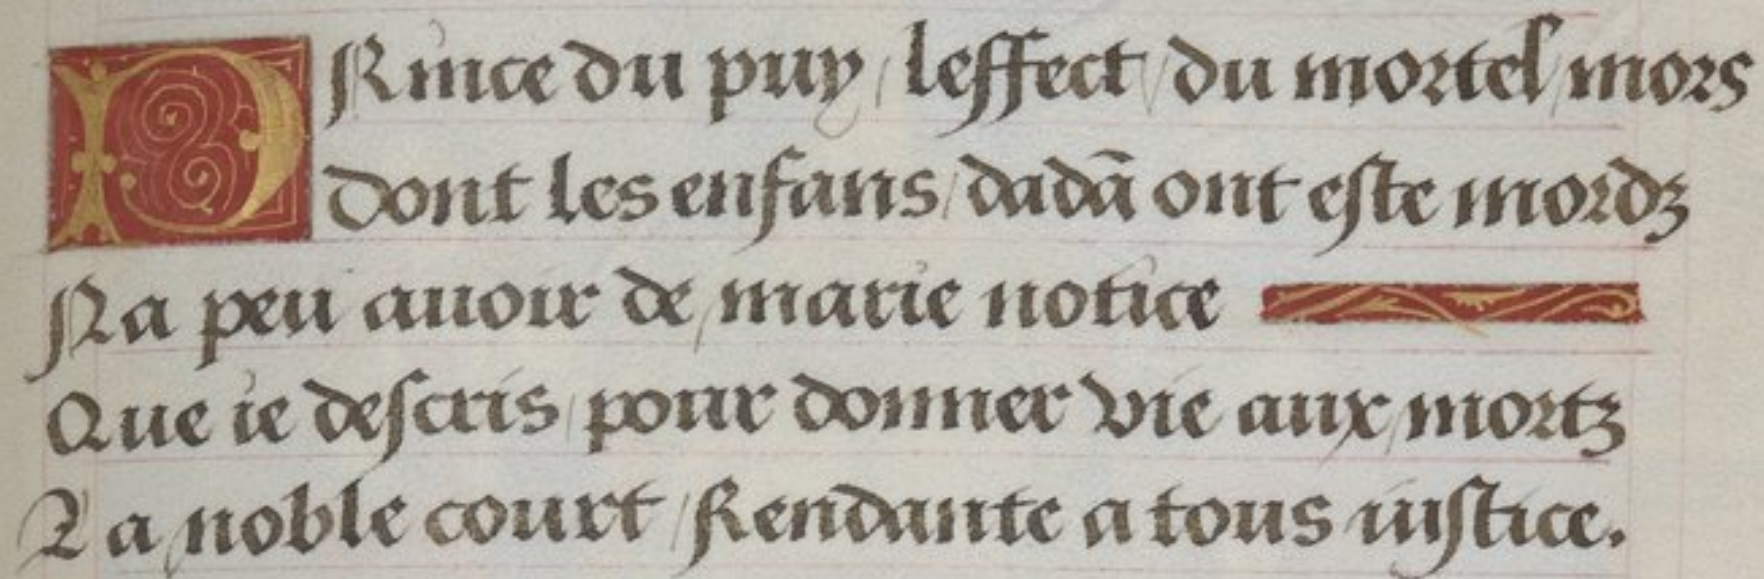 PRince du puy / leffect / du mortel / mors
dont les enfans / dadā ont este mordz
Na peu auoir de / marie notice
Que ie descris / pour donner vie aux / mortz
La / noble court / Rendante a tous iustice.